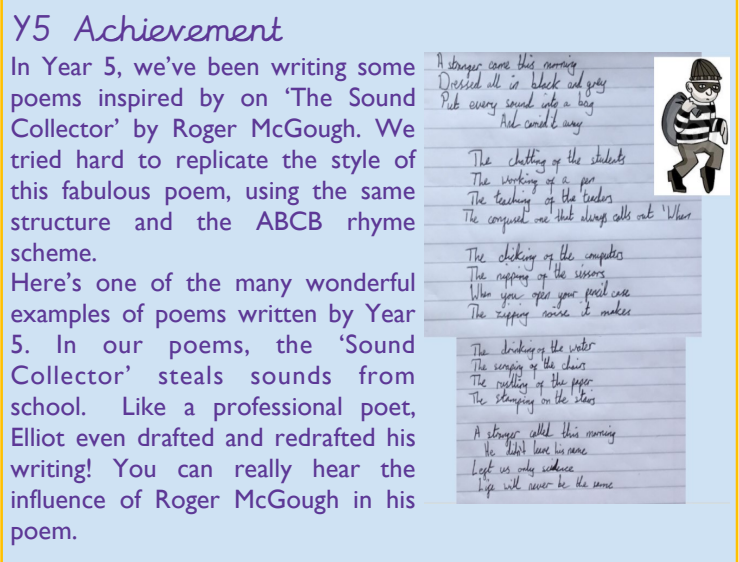 Y5 Achievement
In Year 5, we've been writing some
poems inspired by on 'The Sound
Collector' by Roger McGough. We
tried hard to replicate the style of
this fabulous poem, using the same
structure and the ABCB rhyme
scheme.
Here's one of the many wonderful
examples of poems written by Year
5. In our poems, the 'Sound
Collector' steals sounds from
school. Like a professional poet,
Elliot even drafted and redrafted his
writing! You can really hear the
influence of Roger McGough in his
poem.
A stranger came this morning
Dressed all in black and grey
Put every sound into a bag
And carried it away
The chatting of the students
The working of a pen
The teaching of the
The confused one that always calls out 'When
The clicking of the computers
The of the
When you open your pencil case
The zipping noise it makes
The drinking of the water
The of the chairs
The rustling of the paper
The stamping on the stairs
A stranger called this morning
He didn't leave his name
Left us only
Life will never be the same